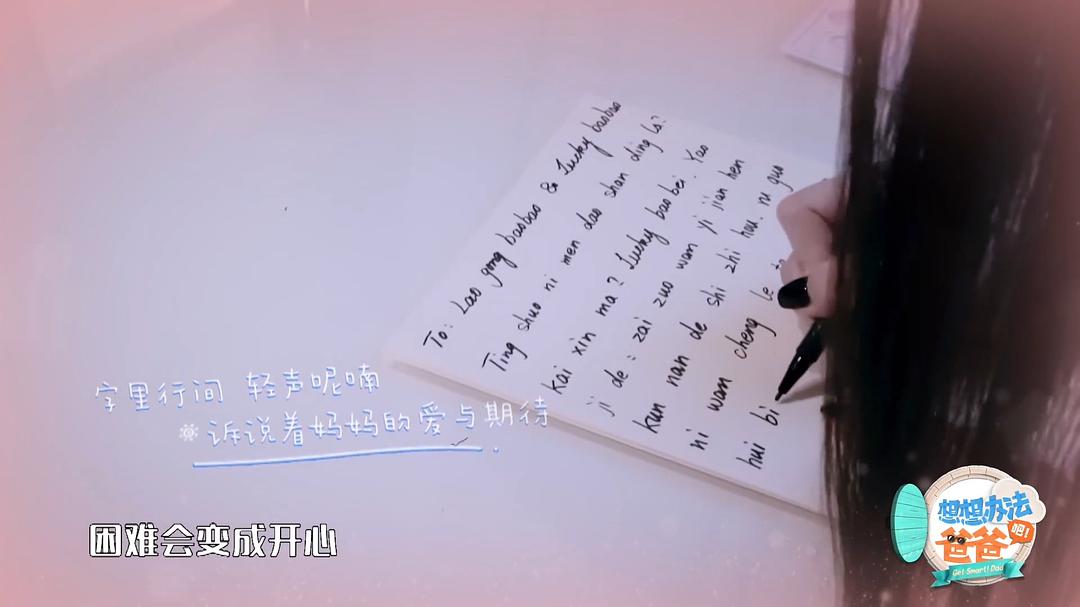 To: Lao gong baobao & Lucky baobao
Ting shuo ni men dao shan ding la?
Kai xin ma? Lucky bao bei. Yao
ji de: zai zuo wan yi jian hen
kun nan de shi zhi hou. ru guo
ni wan cheng le
hui bi
字里行间 轻声呢喃
诉说着妈妈的爱与期待
困难会变成开心
想想办法
吧!
爸爸
Get Smart! Dad